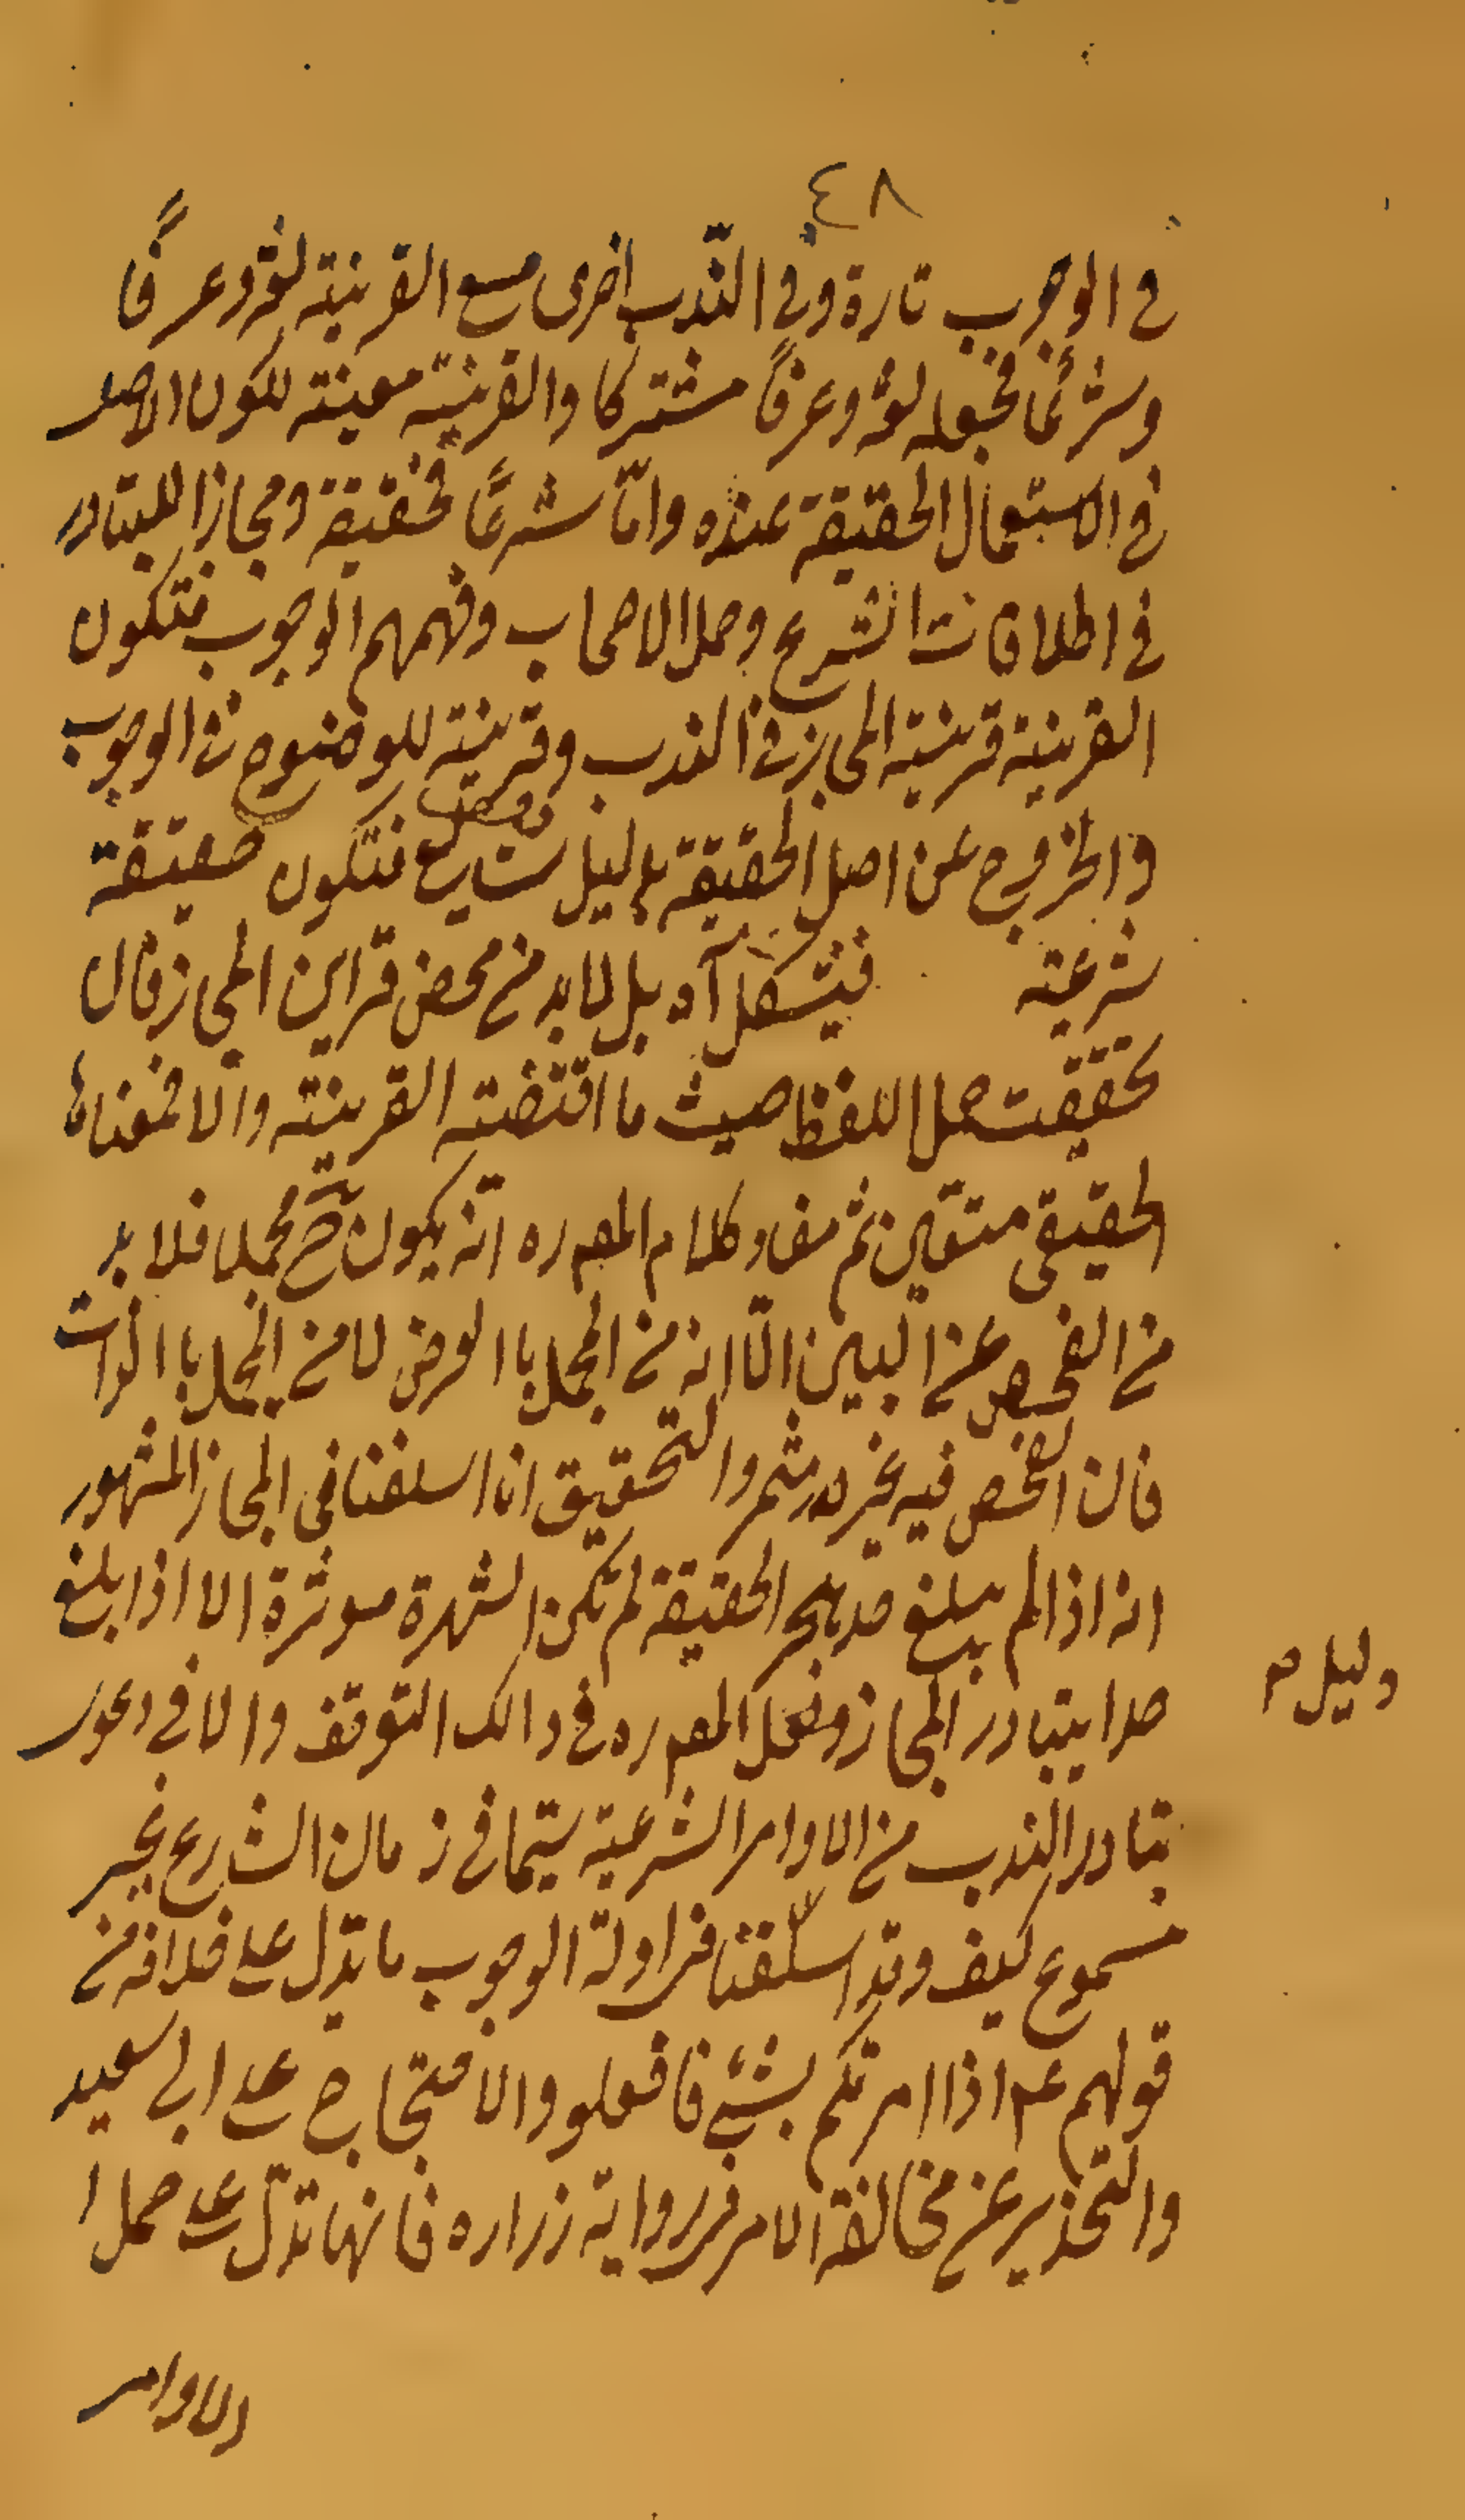 ٤٨
في الوجوب تارة وفي الندب اخرى مع القرينة لغة وعرفًا
وشرعًا فجعله لغة وعرفًا مشتركا والقرينة معينة لكون الاصل
في الاستعمال الحقيقة عنده وامّا شرعًا فحقيقة ومجازا للتبادر
في اطلاقات الشرع وحمل الاصحاب وفهمهم الوجوب فتكون
القرينة قرينة المجاز في الندب وقرينة للوضوح في الوجوب
والخروج عن اصل الحقيقة بدليل فتكون حقيقة
شرعية فيشكل آه بل لا بد من محض قراين المجاز فان
تحققت حمل اللفظ حيث ما اقتضته القرينة والا فمعناها
الحقيقي متعين ثم مفاد كلام المصر ره انه يكون ح مجملا فلا بد
من الفحص عن البين الا انه من المجمل با العرض لا من المجمل با الذات
فان الفحص فيه غير مثمر والتحقيق انا اسلفنا في المجاز المشهور
انه اذا لم يبلغ حد يهجر الحقيقة لم تكن الشهرة موثرة الا اذا بلغ
حدا يتبادر المجاز وفعل المصر ره في ذالك التوقف والا في دعور
دليل م
تبادر الندب من الاوامر الشرعية سيما في زمان الشارع غير
مسموع كيف وقد اسلفنا في ادلة الوجوب ما يدل على خلافه من
قولهم ع م اذا امرتكم بشئ فافعلو والاحتجاج على ابي سعيد
والتحذير عن مخالفة الامر في رواية زراره فانها تدل على حمل ا
الاوامر